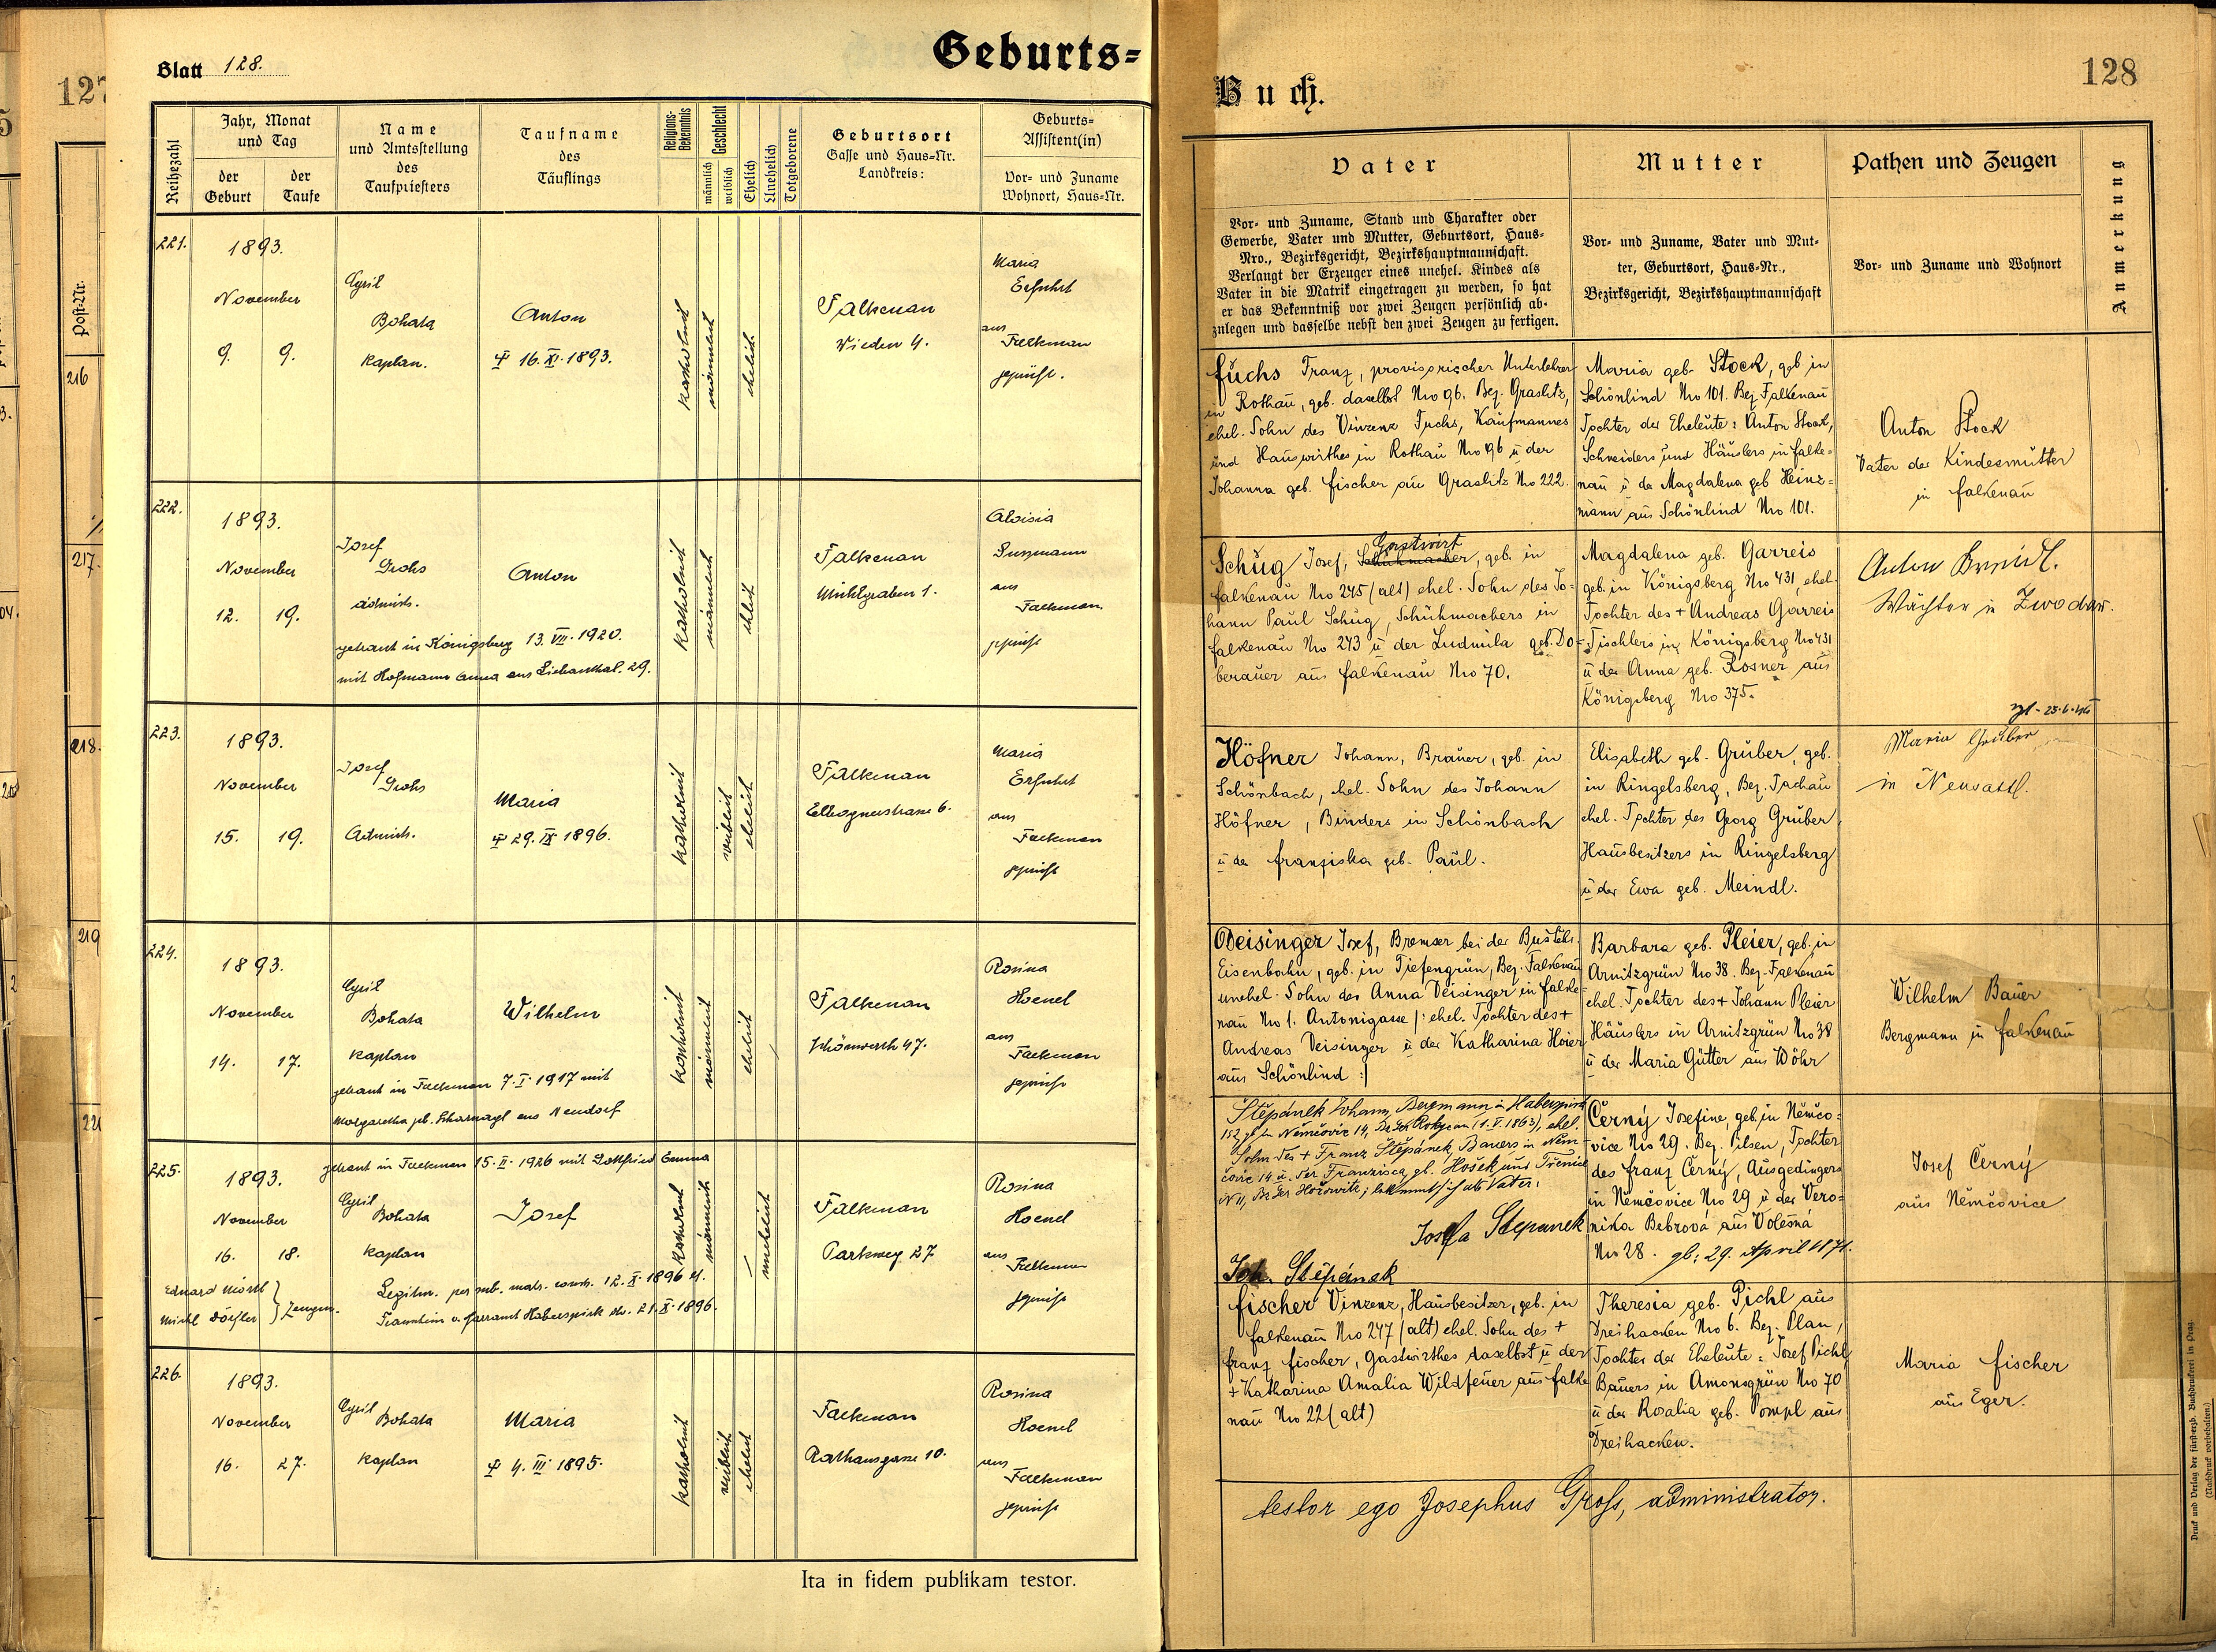 Blatt 128.
Geburts=
Buch.
128
127
Reihezahl
Jahr, Monat
und Tag
der
Geburt
der
Taufe
Name
und Amtsstellung
des
Taufpriesters
Taufname
des
Täuflings
Religions-
Bekenntnis
Geschlecht
männlich
weiblich
Ehelich
Unehelich
Totgeborene
Geburtsort
Gasse und Haus=Nr.
Landkreis:
Geburts=
Assistent(in)
Vor= und Zuname
Wohnort, Haus=Nr.
Vater
Vor= und Zuname, Stand und Charakter oder
Gewerbe, Vater und Mutter, Geburtsort, Haus=
Nro., Bezirksgericht, Bezirkshauptmannschaft.
Verlangt der Erzeuger eines unehel. Kindes als
Vater in die Matrik eingetragen zu werden, so hat
er das Bekenntniß vor zwei Zeugen persönlich ab=
zulegen und dasselbe nebst den zwei Zeugen zu fertigen.
Mutter
Vor= und Zuname, Vater und Mut=
ter, Geburtsort, Haus=Nr.,
Bezirksgericht, Bezirkshauptmannschaft
Pathen und Zeugen
Vor= und Zuname und Wohnort
Anmerkung
Post=Nr.
216
217.
218.
219
221.
1893.
November
9. 9.
Cyril
Bohata
Kaplan.
Anton
16. XI. 1893.
katholisch
männlich
ehelich
Falkenau
Wieden 4.
Maria
Erfuhrt
aus
Falkenau
geprüft.
Fuchs Franz, provisorischer Unterlehrer
in Rothau, geb. daselbst Nro 96. Bez. Graslitz,
ehel. Sohn des Vinzenz Fuchs, Kaufmannes
und Hauswirthes in Rothau Nro 96 u der
Johanna geb. Fischer aus Graslitz Nro 222.
Maria geb. Stock, geb in
Schönlind Nro 101. Bez. Falkenau
Tochter der Eheleute: Anton Stock,
Schneiders und Häuslers in Falke=
nau u der Magdalena geb Heinz=
mann aus Schönlind Nro 101.
Anton Stock
Vater der Kindesmutter
in Falkenau
222.
1893.
November
12. 19.
Josef
Grohs
administ.
Anton
getraut in Königsberg 13. VII. 1920.
mit Hofmann Anna aus Liebauthal. 29.
katholisch
männlich
ehelich
Falkenau
Mühlgraben 1.
Aloisia
aus
Falkenau
geprüft
Gastwirt
Schug Josef, Schuhmacher, geb. in
Falkenau Nro 245 (alt) ehel. Sohn des Jo=
hann Paul Schug, Schuhmachers in
Falkenau Nro 243 u der Ludmila geb. Do=
berauer aus Falkenau Nro 70.
Magdalena geb. Garreis
geb. in Königsberg Nro 431, ehel.
Tochter des + Andreas Garreis
Tischlers in Königsberg Nro 431
u der Anna geb. Rosner aus
Königsberg Nro 375.
Wächter in Zwodau.
223.
1893.
November
15. 19.
Josef
Grohs
Administ.
Maria
29. IX 1896.
katholisch
weiblich
ehelich
Falkenau
Elbognerstrasse 6.
Maria
Erfuhrt
aus
Falkenau
geprüft
Höfner Johann, Brauer, geb. in
Schönbach, ehel. Sohn des Johann
Höfner, Binders in Schönbach
u der Franziska geb. Paul.
Elisabeth geb. Gruber, geb.
in Ringelsberg, Bez. Tachau
ehel. Tochter des Georg Gruber
Hausbesitzers in Ringelsberg
u der Ewa geb. Meindl.
Maria Gruber
in Neusattl.
224.
1893.
November
14. 17.
Cyril
Bohata
Kaplan
Wilhelm
getraut in Falkenau 7. I. 1917 mit
Margaretha geb. Scharnagl aus Neudorf
katholisch
männlich
ehelich
Falkenau
Schönwerth 47.
Rosina
Hoenel
aus
Falkenau
geprüft
Deisinger Josef, Bremser bei der Buštěhr.
Eisenbahn, geb. in Tiefengrün, Bez. Falkenau
unehel. Sohn der Anna Deisinger in Falke=
nau Nro 1. Antonigasse |: ehel. Tochter des +
Andreas Deisinger u der Katharina Hoier
aus Schönlind :|
Barbara geb. Pleier, geb. in
Arnitzgrün Nro 38. Bez. Falkenau
ehel. Tochter des + Johann Pleier
Häuslers in Arnitzgrün Nro 38
u der Maria Gütter aus Wöhr
Wilhelm Bauer
Bergmann in Falkenau
225.
getraut in Falkenau 15. II. 1926 mit Gottfried Emma
1893.
November
16. 18.
Cyril
Bohata
Kaplan
Josef
Zeugen.
Legitim. per sub. matr. consh. 12. X. 1896
katholisch
männlich
unehelich
Falkenau
Parkweg 27
Rosina
Hoenel
aus
Falkenau
geprüft
Štěpánek Johann, Bergmann in Haberspirk
152, geb. in Němčovic 14, Bz. Ger. Rokycan (1. V. 1863), ehel.
Sohn des + Franz Štěpánek, Bauers in Něm=
čovic 14 u. der Franzisca gb. Hošek aus Třenice
N 11, Bz Ger Hořowitz; bekennt sich als Vater.
Josefa Stepanek
Joh. Štěpánek
Černý Josefine, geb. in Němčo=
vice Nro 29. Bez. Pilsen, Tochter
des Franz Černý, Ausgedingers
in Němčovice Nro 29 u der Vero=
nika Bebrová aus Volešná
Nro 28. gb: 29. April 1871.
Josef Černý
aus Němčovice
226.
1893.
November
16. 27.
Cyril
Bohata
Kaplan
Maria
4. III. 1895.
katholisch
weiblich
ehelich
Falkenau
Rathausgasse 10.
Rosina
Hoenel
aus
Falkenau
geprüft
Fischer Vinzenz, Hausbesitzer, geb. in
Falkenau Nro 247 (alt) ehel. Sohn des +
Franz Fischer, Gastwirthes daselbst u der
+ Katharina Amalia Wildfeuer aus Falke
nau Nro 22 (alt)
Theresia geb. Pichl aus
Dreihacken Nro 6. Bez. Plan,
Tochter der Eheleute: Josef Pichl
Bauers in Amonsgrün Nro 70
u der Rosalia geb. Pompl aus
Dreihacken.
Maria Fischer
aus Eger.
testor ego Josephus Gross, administrator.
Ita in fidem publikam testor.
Druck und Verlag der fürsterzb. Buchdruckerei in Prag.
(Nachdruck vorbehalten.)